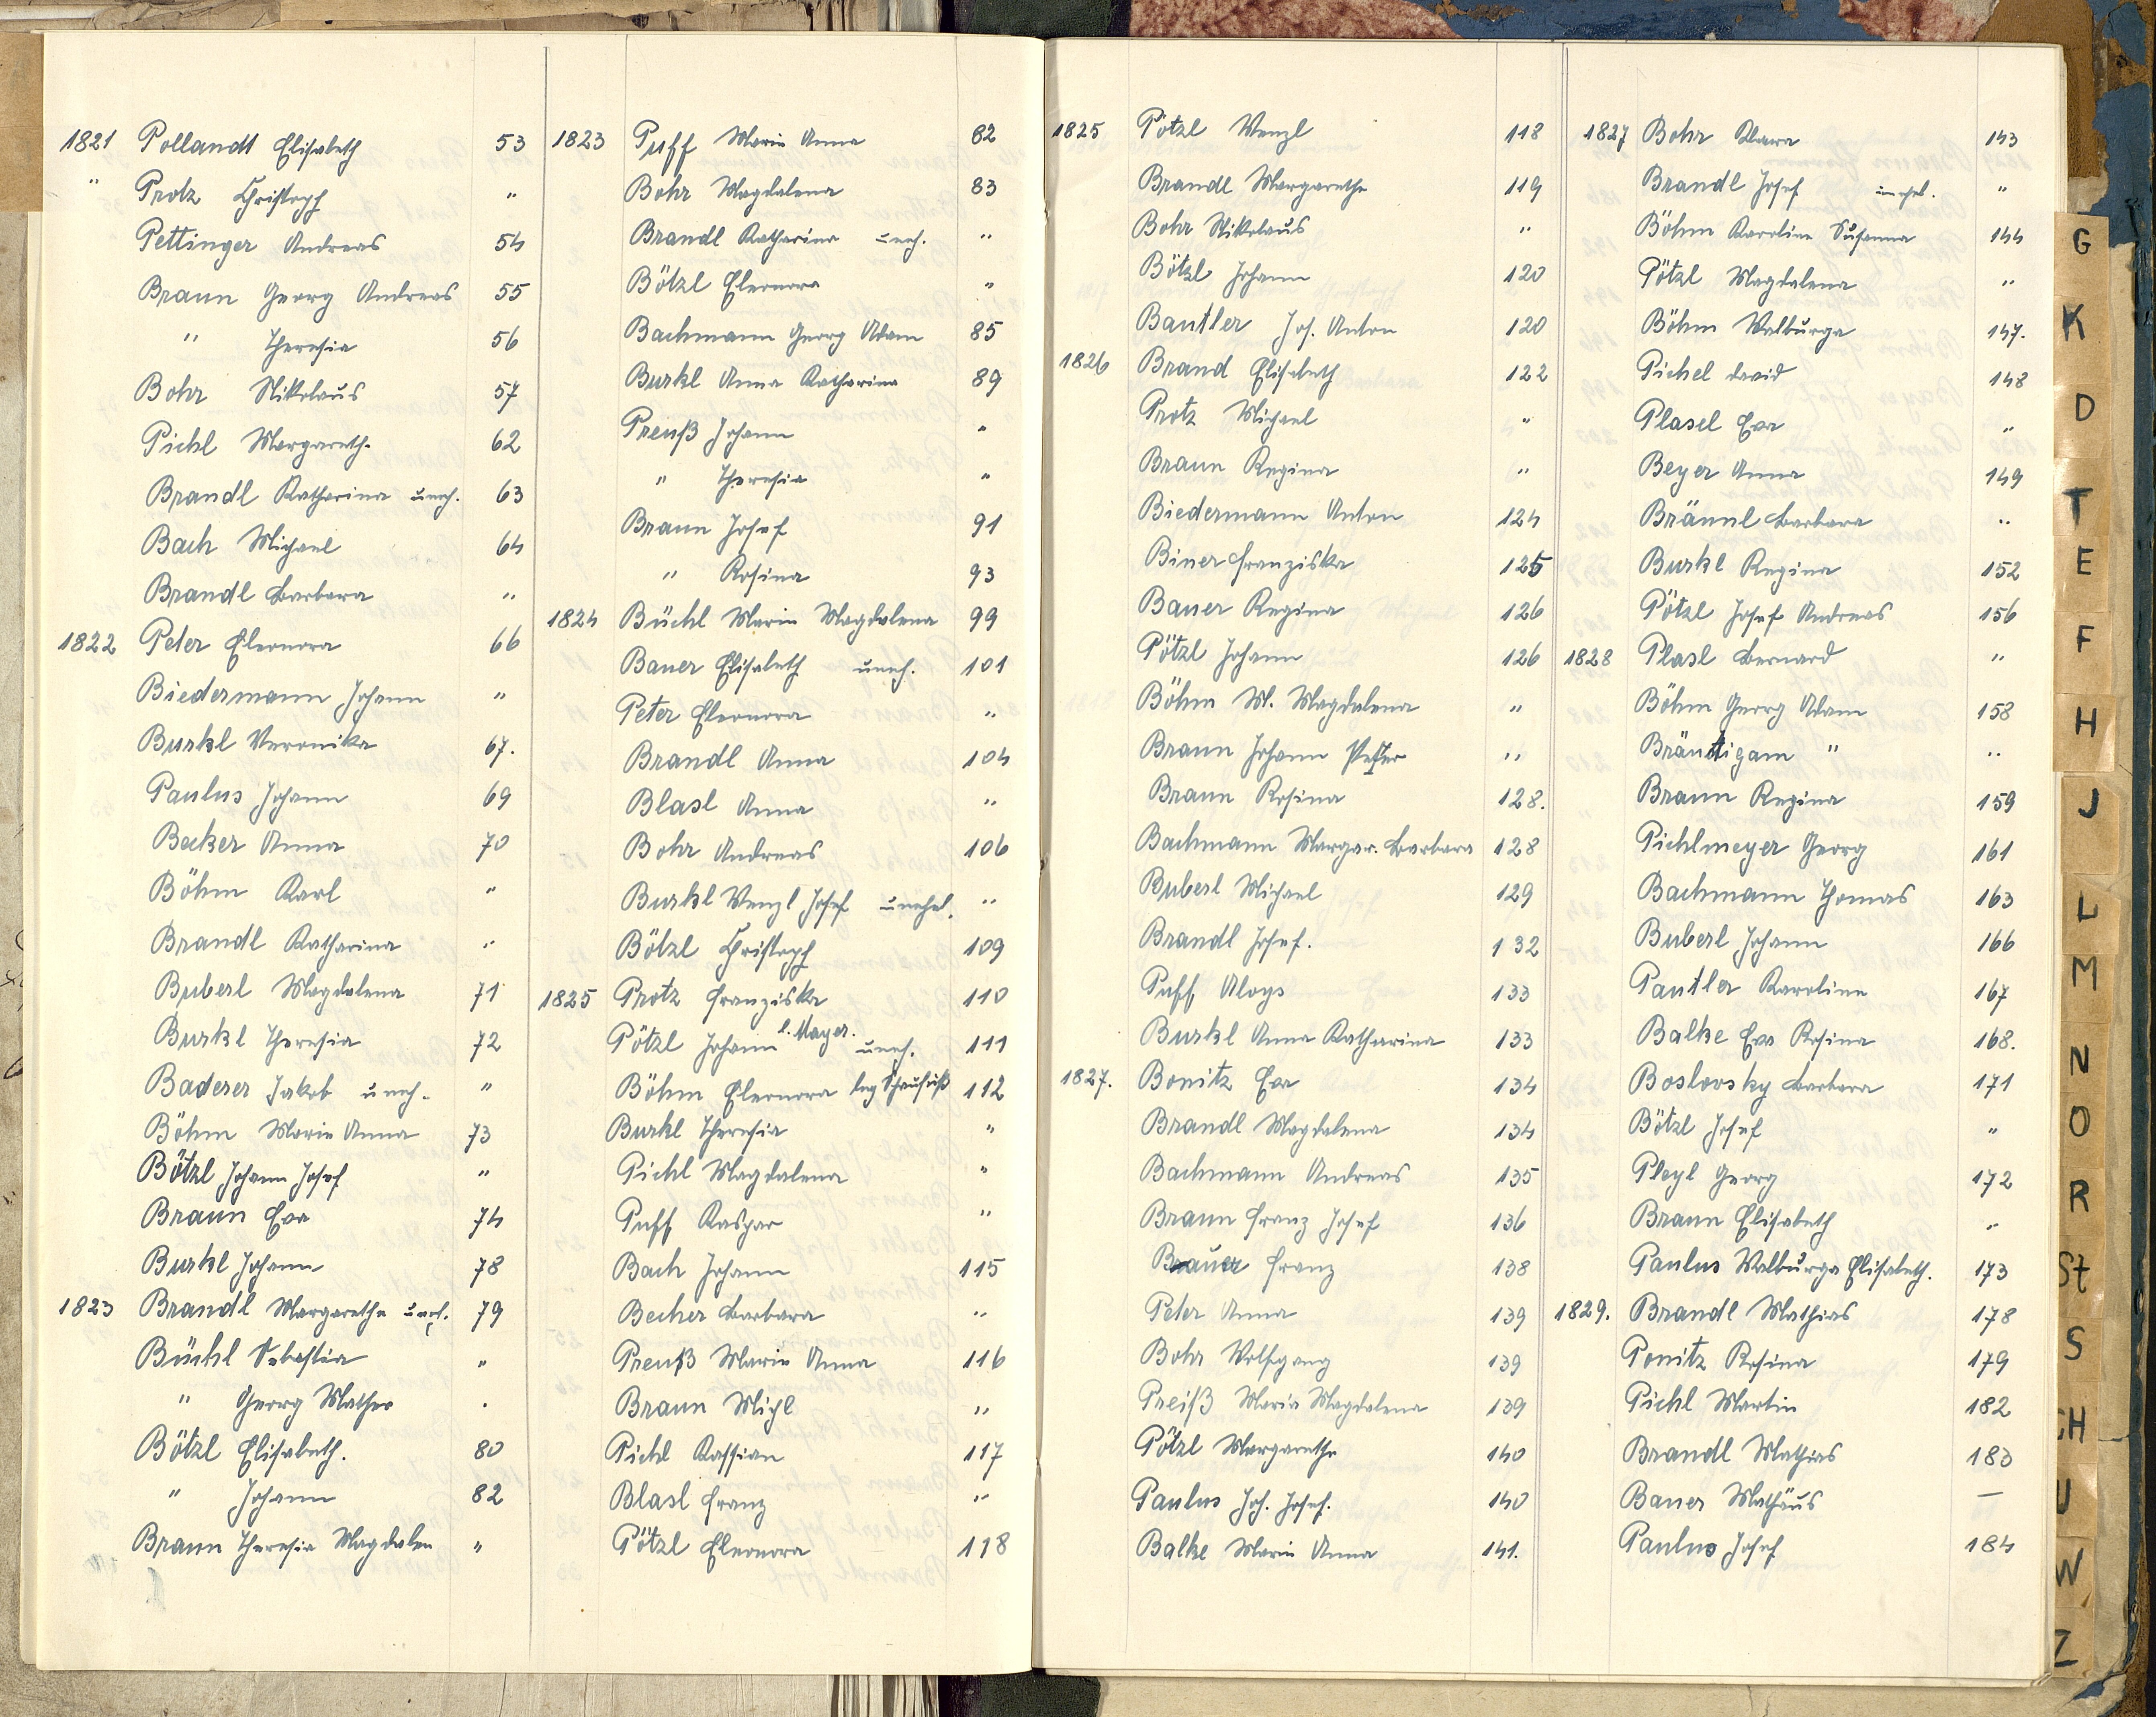 1821 Pollandt Elisabeth 53
" Protz Christoph "
Pettinger Andreas 54
Braun Georg Andreas 55
" Theresia 56
Bohr Nikolaus 57
Pichl Margareth. 62
Brandl Katharina uneh. 63
Bach Michael 64
Brandl Barbara "
1822 Peter Eleonora 66
Biedermann Johann "
Burkl Veronika 67.
Paulus Johann 69
Becker Anna 70
Böhm Karl "
Brandl Katharina "
Buberl Magdalena 71
Burkl Theresia 72
Baderer Jakob uneh. "
Böhm Maria Anna 73
Bötzl Johann Josef "
Braun Eva 74
Burkl Johann 78
1823 Brandl Margaretha uneh. 79
Büchl Sebastian "
" Georg Mathes .
Bötzl Elisabeth. 80
" Johann 82
Braun Theresia Magdalen "
1823 Puff Maria Anna 82
Bohr Magdalena 83
Brandl Katharina uneh. "
Bötzl Eleonora "
Bachmann Georg Adam 85
Burkl Anna Katharina 89
Preuß Johann "
" Theresia "
Braun Josef 91
" Rosina 93
1824 Büchl Maria Magdalena 99
Bauer Elisabeth uneh. 101
Peter Eleonora "
Brandl Anna 104
Blasl Anna "
Bohr Andreas 106
Burkl Wenzl Josef unehel. "
Bötzl Christoph 109
1825 Protz Franziska 110
Pötzl Johann l. Mayer. uneh. 111
Böhm Eleonora leg 112
Burkl Theresia "
Pichl Magdalena "
Puff Kaspar "
Bach Johann 115
Becher Barbara "
Preuß Maria Anna 116
Braun Michl "
Pichl Kassian 117
Blasl Franz "
Pötzl Eleonora 118
1825 Pötzl Wenzl 118
Brandl Margaretha 119
Bohr Nikolaus "
Bötzl Johann 120
Bantler Joh. Anton 120
1826 Brand Elisabeth 122
Protz Michael "
Braun Regina "
Biedermann Anton 124
Biner Franziska 125
Bauer Regina 126
Pötzl Johann 126
Böhm M. Magdalena "
Braun Johann Peter "
Braun Rosina 128.
Bachmann Margar. Barbara 128
Buberl Michael 129
Brandl Josef. 132
Puff Aloys 133
Burkl Anna Katharina 133
1827. Bonitz Eva 134
Brandl Magdalena 134
Bachmann Andreas 135
Braun Franz Josef 136
Brauer Franz 138
Peter Anna 139
Bohr Wolfgang 139
Preiß Maria Magdalena 139
Pötzl Margaretha 140
Paulus Joh. Josef. 140
Balke Maria Anna 141.
1827 Bohr Klara 143
Brandl Josef unehel. "
Böhm Karoline Susanna 144
Pötzl Magdalena "
Böhm Walburga 147.
Pichel David 148
Plasel Eva "
Beyer Anna 149
Bräunl Barbara "
Burkl Regina 152
Pötzl Josef Andreas 156
1828 Plasl Bernard "
Böhm Georg Adam 158
Bräutigam " "
Braun Regina 159
Pichlmeyer Georg 161
Bachmann Thomas 163
Buberl Johann 166
Pantler Karoline 167
Balke Eva Rosina 168.
Boslovsky Barbara 171
Bötzl Josef "
Pleyl Georg 172
Braun Elisabeth "
Paulus Walburga Elisabeth. 173
1829. Brandl Mathias 178
Ponitz Rosina 179
Pichl Martin 182
Brandl Mathias 183
Bauer Mathäus —
Paulus Josef 184
G
K
D
T
E
F
H
J
L
M
N
O
R
St
S
CH
U
W
Z